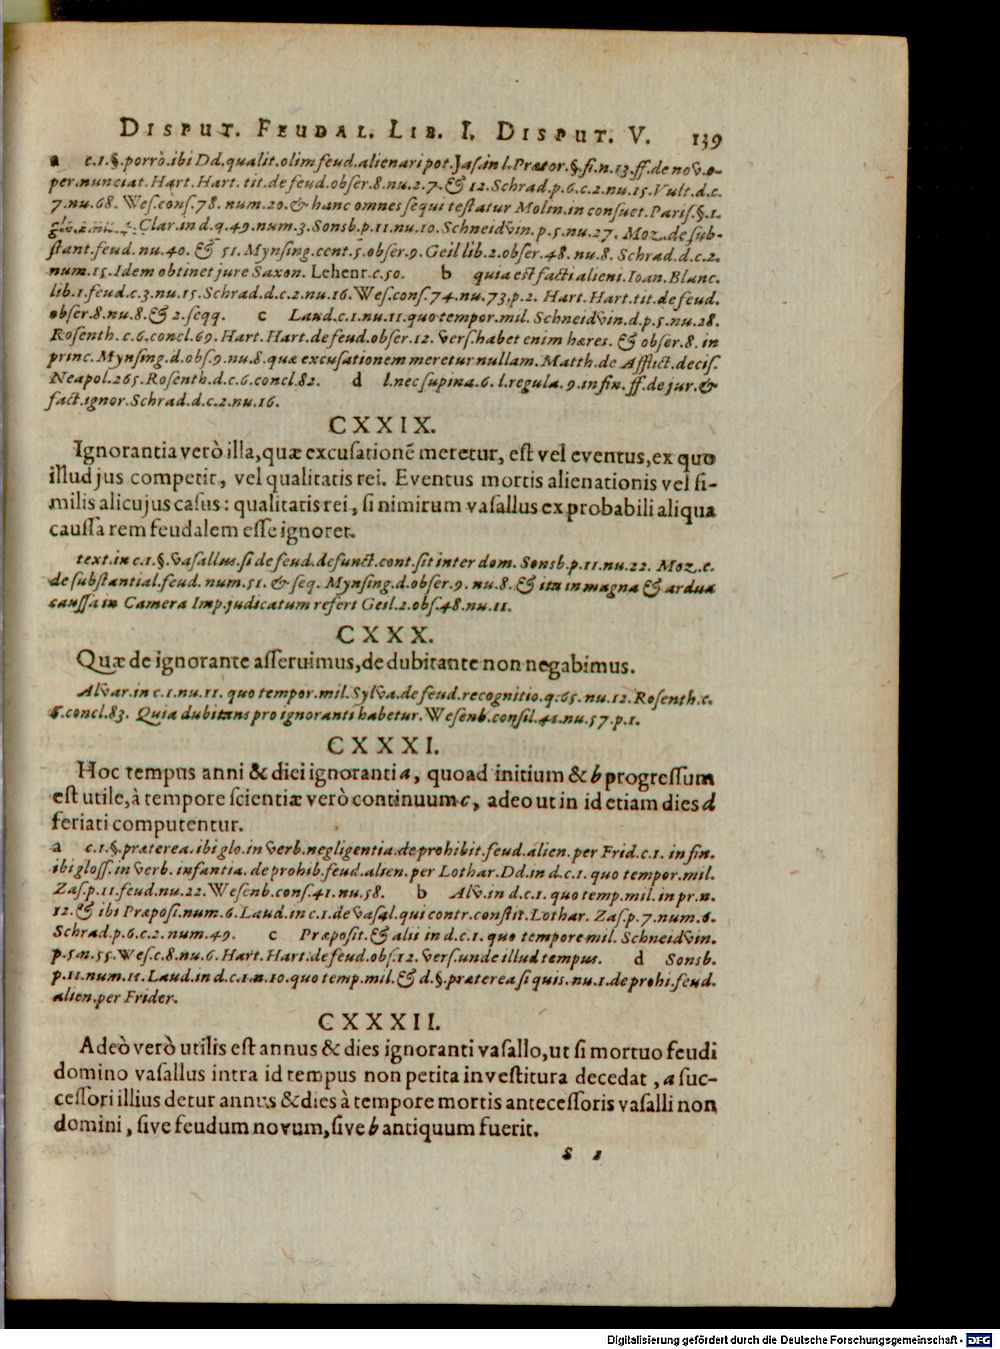 DISPUT. FEUDAL. LIB. I. DISPUT. V. 139
a c.1.§.porrò.ibi Dd.qualit.olim feud.alienari pot.Jas.in l.Prætor.§.fi.n.13.ff.de nov.o-
per.nunciat.Hart.Hart.tit.de feud.obser.8.nu.2.7.& 12.Schrad.p.6.c.2.nu.15.Vult.d.c.
7.nu.68. Wes.cons.78. num.20.& hanc omnes sequi testatur Molin.in consuet.Paris.§.1.
Clar.in d.q.49.num.3.Sonsb.p.11.nu.10.Schneidvin.p.5.nu.27. Moz.de sub-
stant.feud. nu.40. & 51. Mynsing.cent.5.obser.9.Geil lib.2.obser.48.nu.8. Schrad.d.c.2.
num.15.Idem obtinet jure Saxon. Lehenr.c.50. b quia est facti alieni.Ioan.Blanc.
lib.1.feud.c.3.nu.15.Schrad.d.c.2.nu.16.Wes.cons.74.nu.73.p.2. Hart.Hart.tit.de feud.
obser.8.nu.8.& 2.seqq. c Laud.c.1.nu.11.quo tempor.mil. Schneidvin.d.p.5.nu.28.
Rosenth.c.6.concl.69.Hart.Hart.de feud.obser.12. vers.habet enim hæres. & obser.8. in
princ.Mynsing.d.obs.9.nu.8.quæ excusationem meretur nullam. Matth.de Afflict.decis.
Neapol.265.Rosenth.d.c.6.concl.82. d l.nec supina.6. l.regula.9.in fin. ff.de jur.&
fact.ignor.Schrad.d.c.2.nu.16.
CXXIX.
Ignorantia verò illa, quæ excusationē meretur, est vel eventus, ex quo
illud jus competit, vel qualitatis rei. Eventus mortis alienationis vel si-
milis alicujus casus: qualitatis rei, si nimirum vasallus ex probabili aliqua
caussa rem feudalem esse ignoret.
text.in c.1.§.vasallus.si de feud.defunct.cont.sit inter dom. Sonsb.p.11.nu.22. Moz.c.
de substantial.feud. num.51. & seq. Mynsing.d.obser.9. nu.8. & ita in magna & ardua
caussa in Camera Imp.judicatum refert Geil.2.obs.48.nu.11.
CXXX.
Quæ de ignorante asseruimus, de dubitante non negabimus.
Alvar.in c.1.nu.11. quo tempor.mil.Sylva.de feud.recognitio.q.65.nu.12.Rosenth.c.
6.concl.83. Quia dubitans pro ignoranti habetur.Wesenb.consil.41.nu.57.p.1.
CXXXI.
Hoc tempus anni & diei ignoranti a, quoad initium & b progressum
est utile, à tempore scientiæ verò continuum c, adeo ut in id etiam dies d
feriati computentur.
a c.1.§.præterea.ibi glo.in verb.negligentia.de prohibit.feud.alien.per Frid.c.1. in fin.
ibi gloss.in verb. infantia. de prohib.feud.alien.per Lothar.Dd.in d.c.1. quo tempor.mil.
Zas.p.11.feud.nu.22.Wesenb.cons.41.nu.58. b Alv.in d.c.1. quo temp.mil.in pr.n.
12.& ibi Præposi.num.6.Laud.in c.1.de vasal.qui contr.constit.Lothar. Zas.p.7.num.6.
Schrad.p.6.c.2.num.49. c Præposit.& alii in d.c.1. quo tempore mil. Schneidvin.
p.5.n.55.Wes.c.8.nu.6.Hart.Hart.de feud.obs.12.vers.unde illud tempus. d Sonsb.
p.11.num.11.Laud.in d.c.1.n.10.quo temp.mil.& d.§.præterea si quis.nu.1.de prohi.feud.
alien.per Frider.
CXXXII.
Adeò verò utilis est annus & dies ignoranti vasallo, ut si mortuo feudi
domino vasallus intra id tempus non petita investitura decedat, a suc-
cessori illius detur annus & dies à tempore mortis antecessoris vasalli non
domini, sive feudum novum, sive b antiquum fuerit.
S 2
Digitalisierung gefördert durch die Deutsche Forschungsgemeinschaft - DFG